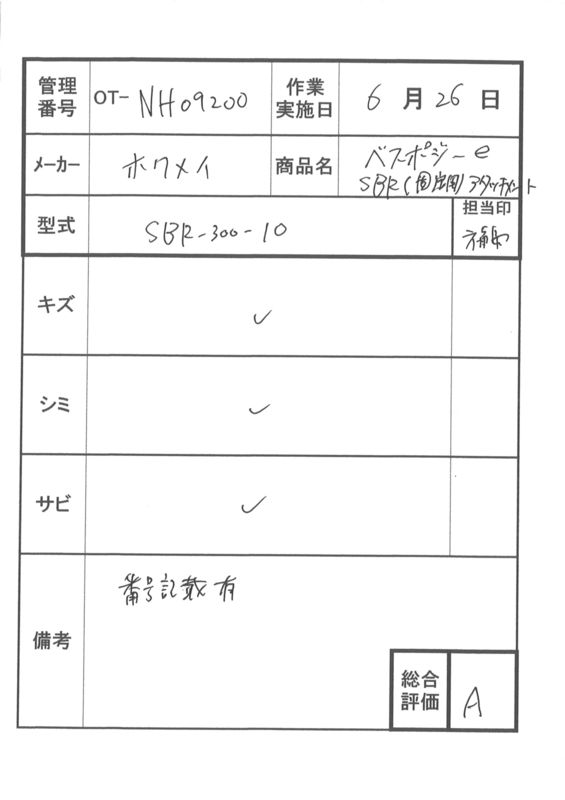 管理番号 OT- NH09200 作業実施日 6月26日
メーカー ホクメイ 商品名 ベスポジーe
SBR(固定用)アタッチメント
型式 SBR-300-10 担当印
キズ ✓
シミ ✓
サビ ✓
備考 番号記載有
総合評価 A